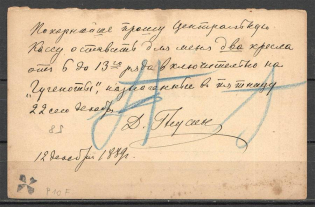 Покорнѣйше прошу Центральную
Кассу оставить для меня два кресла
отъ 6 до 13го ряда включительно на
"Гугеноты", назначенные в пятницу
22 сего декаб.
Д.
83
12 декабря 1889г.